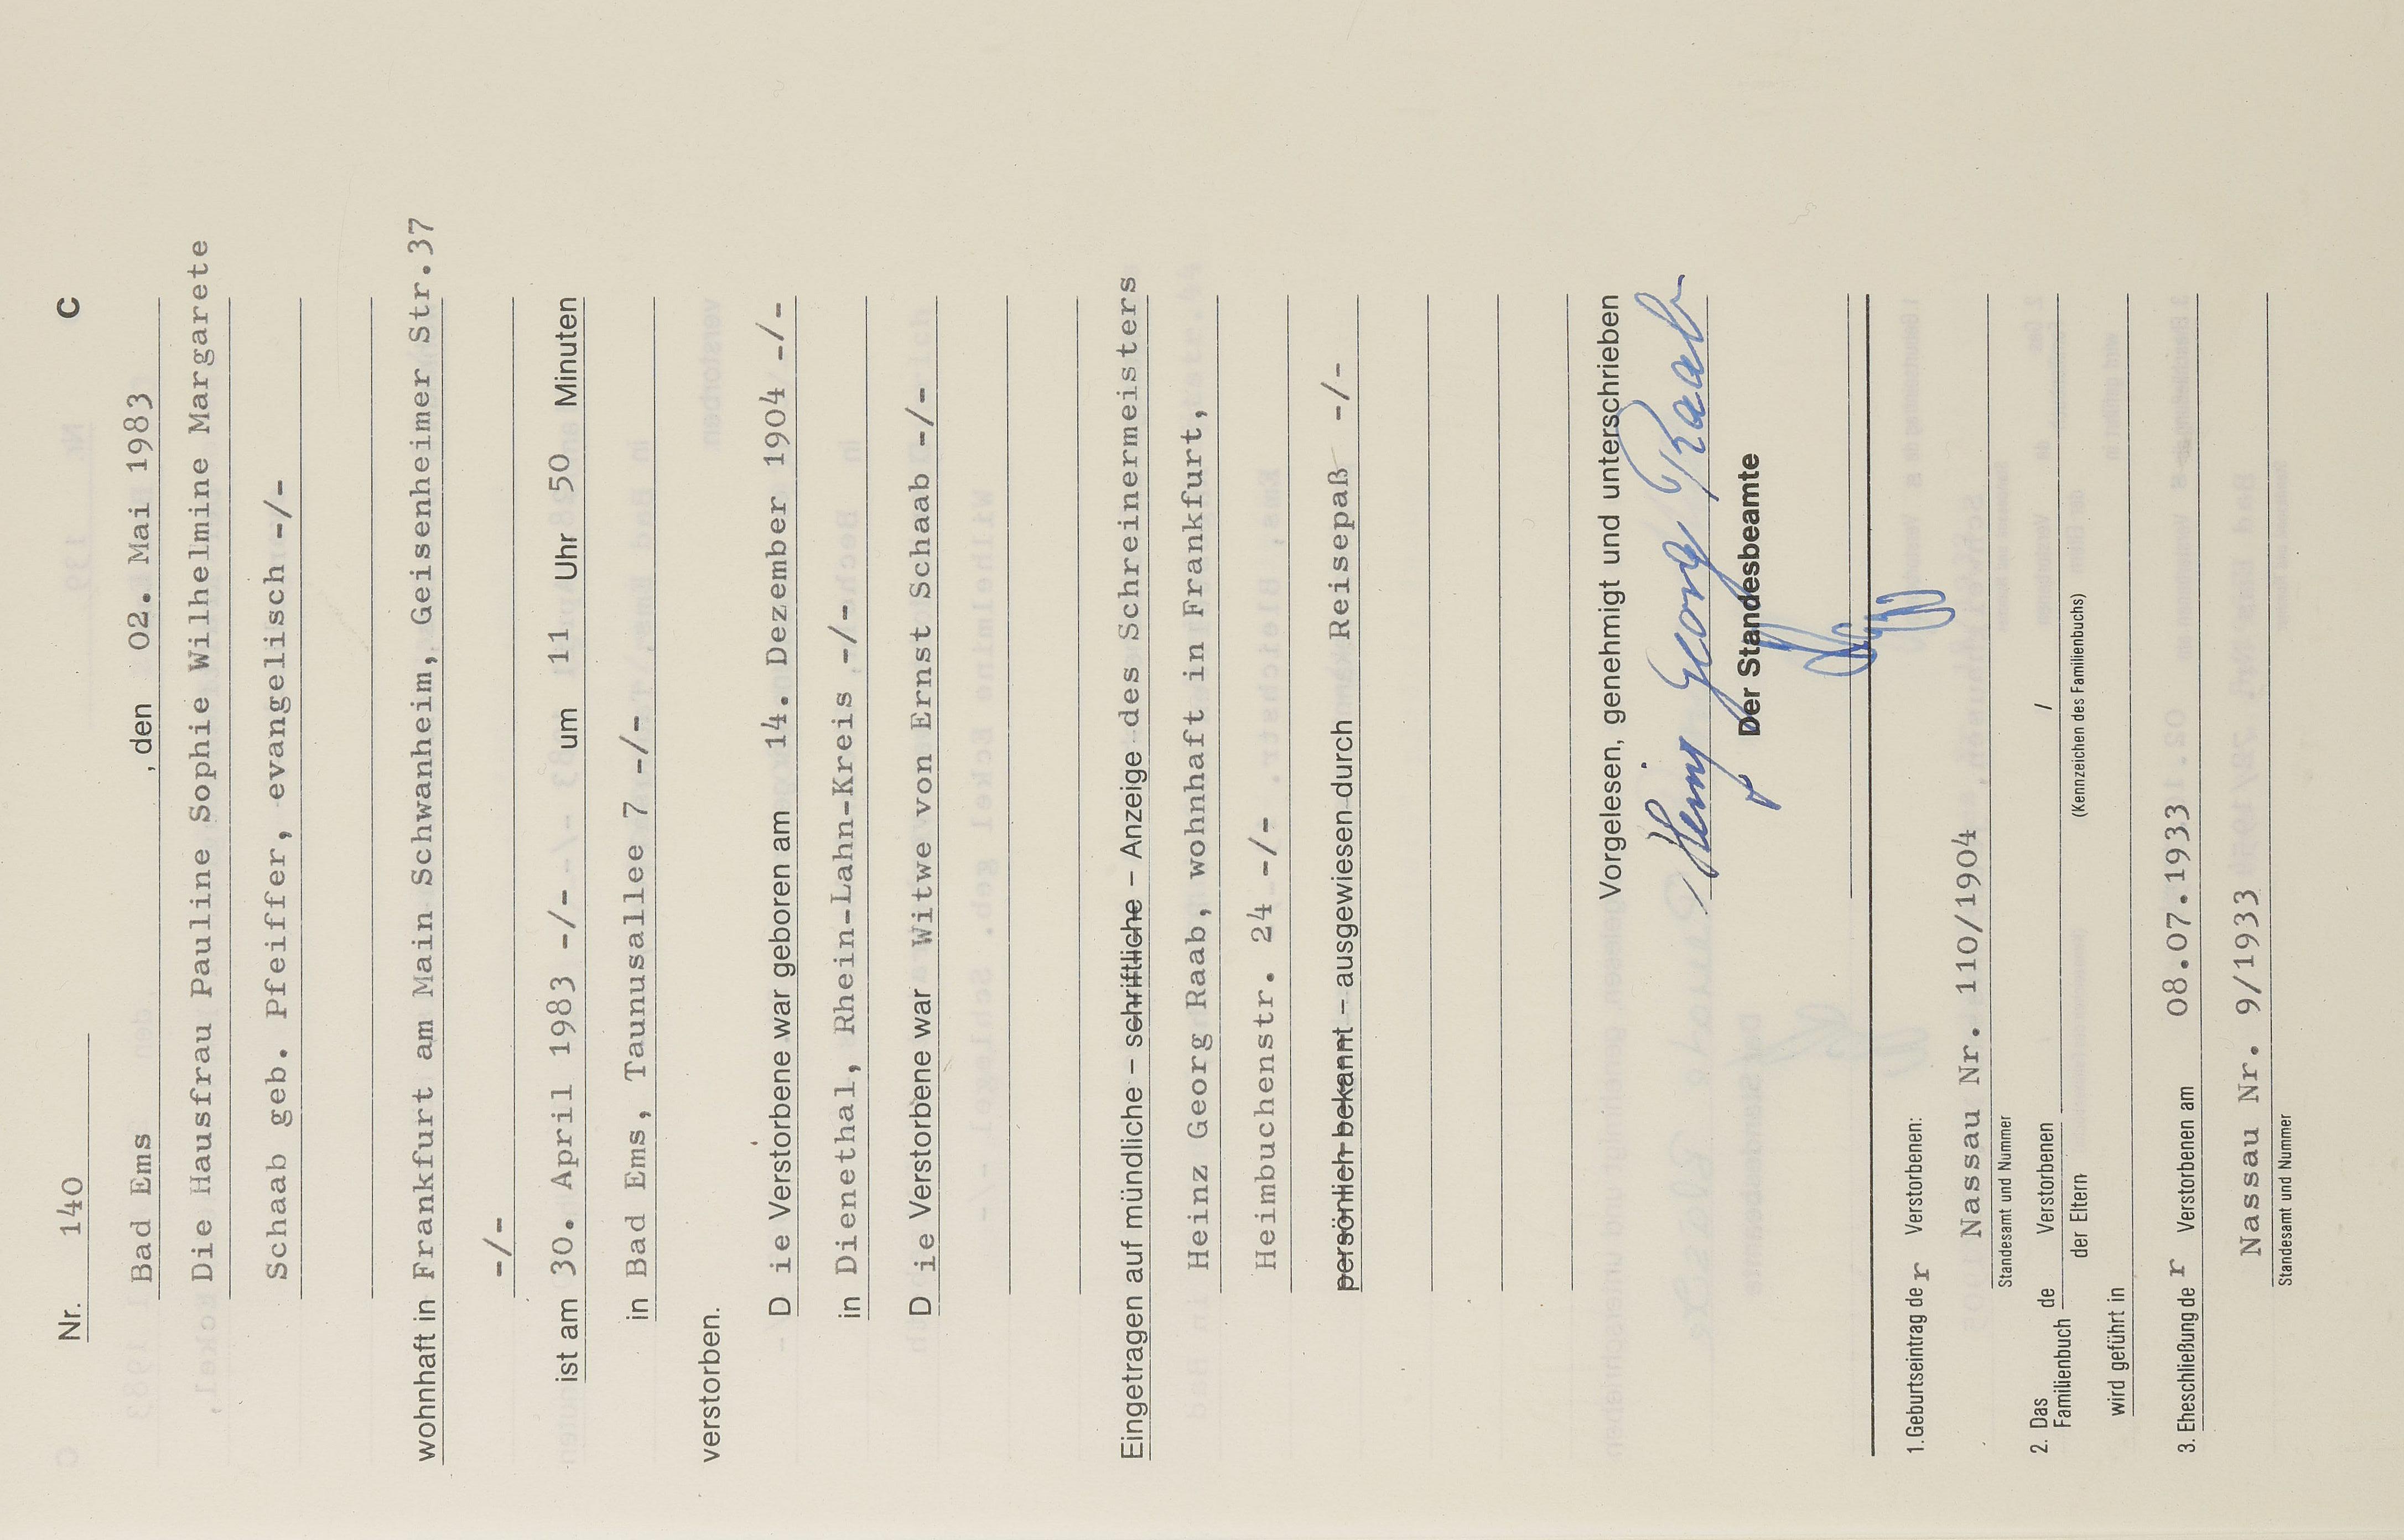 Nr. 140 C
Bad Ems, den 02. Mai 1983
Die Hausfrau Pauline Sophie Wilhelmine Margarete
Schaab geb. Pfeiffer, evangelisch -/-
wohnhaft in Frankfurt am Main Schwanheim, Geisenheimer Str.37
-/-
ist am 30. April 1983 -/- um 11 Uhr 50 Minuten
in Bad Ems, Taunusallee 7 -/-
verstorben.
D ie Verstorbene war geboren am 14. Dezember 1904 -/-
in Dienethal, Rhein-Lahn-Kreis -/-
D ie Verstorbene war Witwe von Ernst Schaab -/-
Eingetragen auf mündliche – schriftliche – Anzeige des Schreinermeisters
Heinz Georg Raab, wohnhaft in Frankfurt,
Heimbuchenstr. 24 -/-
persönlich bekannt – ausgewiesen durch Reisepaß -/-
Vorgelesen, genehmigt und unterschrieben
Heinz Georg Raab
Der Standesbeamte
1. Geburtseintrag de r Verstorbenen:
Nassau Nr. 110/1904
Standesamt und Nummer
2. Das Familienbuch de Verstorbenen /
der Eltern (Kennzeichen des Familienbuchs)
wird geführt in
3. Eheschließung de r Verstorbenen am 08.07.1933
Nassau Nr. 9/1933
Standesamt und Nummer